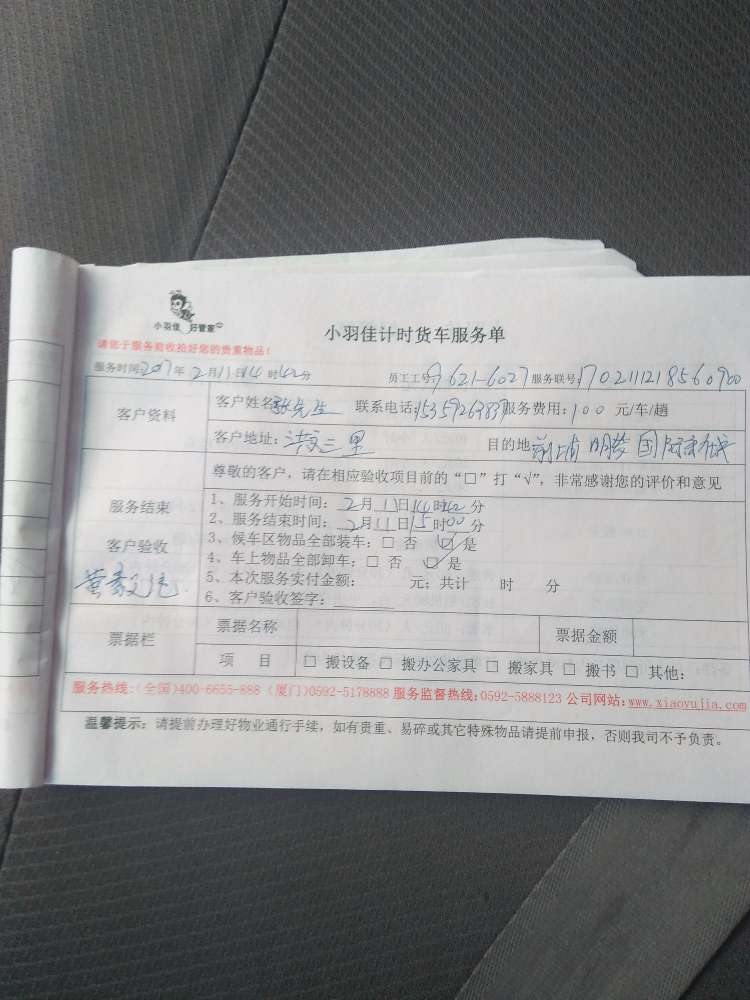 小羽佳 好管家
小羽佳计时货车服务单
请您于服务前收拾好您的贵重物品！
服务时间2017年2月11日14时42分 员工工号 621-6027 服务联号 1702111218560900
客户资料
客户姓名：张先生 联系电话：15359263837 服务费用：100 元/车/趟
客户地址：洪文三里 目的地：前埔 明发 国际
尊敬的客户，请在相应验收项目前的“□”打“√”，非常感谢您的评价和意见
服务结束
客户验收
1、服务开始时间：2月11日14时42分
2、服务结束时间：2月11日15时00分
3、候车区物品全部装车：□ 否 ☑ 是
4、车上物品全部卸车：□ 否 ☑ 是
5、本次服务实付金额： 元；共计 时 分
6、客户验收签字：
票据栏
票据名称 票据金额
项 目 □ 搬设备 □ 搬办公家具 □ 搬家具 □ 搬书 □ 其他：
服务热线：(全国)400-6655-888 (厦门)0592-5178888 服务监督热线：0592-5888123 公司网站：www.xiaoyujia.com
温馨提示：请提前办理好物业通行手续，如有贵重、易碎或其它特殊物品请提前申报，否则我司不予负责。